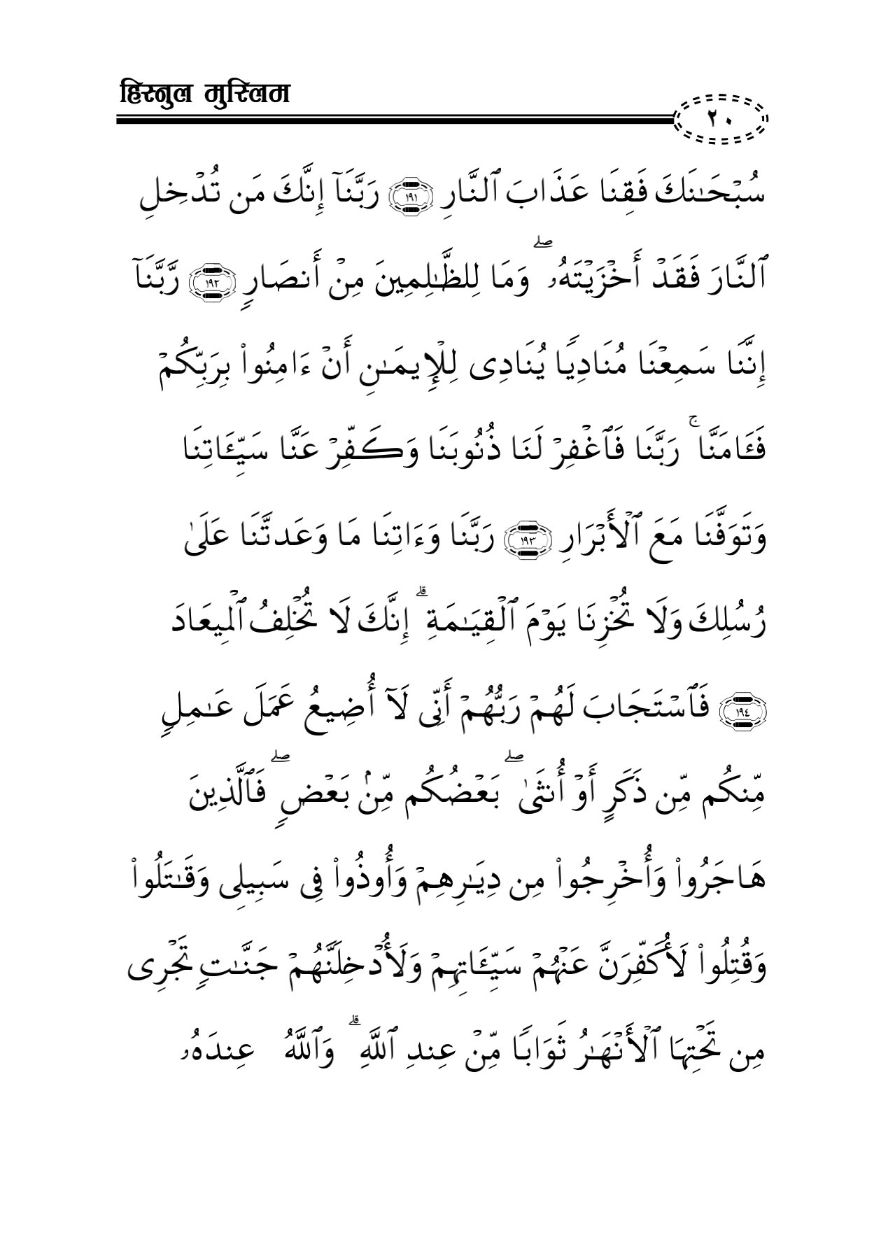 हिस्नुल मुस्लिम
٢٠
سُبْحَـٰنَكَ فَقِنَا عَذَابَ ٱلنَّارِ ١٩١ رَبَّنَآ إِنَّكَ مَن تُدْخِلِ
ٱلنَّارَ فَقَدْ أَخْزَيْتَهُۥ ۖ وَمَا لِلظَّـٰلِمِينَ مِنْ أَنصَارٍ ١٩٢ رَّبَّنَآ
إِنَّنَا سَمِعْنَا مُنَادِيًا يُنَادِى لِلْإِيمَـٰنِ أَنْ ءَامِنُوا۟ بِرَبِّكُمْ
فَـَٔامَنَّا ۚ رَبَّنَا فَٱغْفِرْ لَنَا ذُنُوبَنَا وَكَفِّرْ عَنَّا سَيِّـَٔاتِنَا
وَتَوَفَّنَا مَعَ ٱلْأَبْرَارِ ١٩٣ رَبَّنَا وَءَاتِنَا مَا وَعَدتَّنَا عَلَىٰ
رُسُلِكَ وَلَا تُخْزِنَا يَوْمَ ٱلْقِيَـٰمَةِ ۗ إِنَّكَ لَا تُخْلِفُ ٱلْمِيعَادَ
١٩٤ فَٱسْتَجَابَ لَهُمْ رَبُّهُمْ أَنِّى لَآ أُضِيعُ عَمَلَ عَـٰمِلٍ
مِّنكُم مِّن ذَكَرٍ أَوْ أُنثَىٰ ۖ بَعْضُكُم مِّنۢ بَعْضٍ ۖ فَٱلَّذِينَ
هَاجَرُوا۟ وَأُخْرِجُوا۟ مِن دِيَـٰرِهِمْ وَأُوذُوا۟ فِى سَبِيلِى وَقَـٰتَلُوا۟
وَقُتِلُوا۟ لَأُكَفِّرَنَّ عَنْهُمْ سَيِّـَٔاتِهِمْ وَلَأُدْخِلَنَّهُمْ جَنَّـٰتٍ تَجْرِى
مِن تَحْتِهَا ٱلْأَنْهَـٰرُ ثَوَابًا مِّنْ عِندِ ٱللَّهِ ۗ وَٱللَّهُ عِندَهُۥ